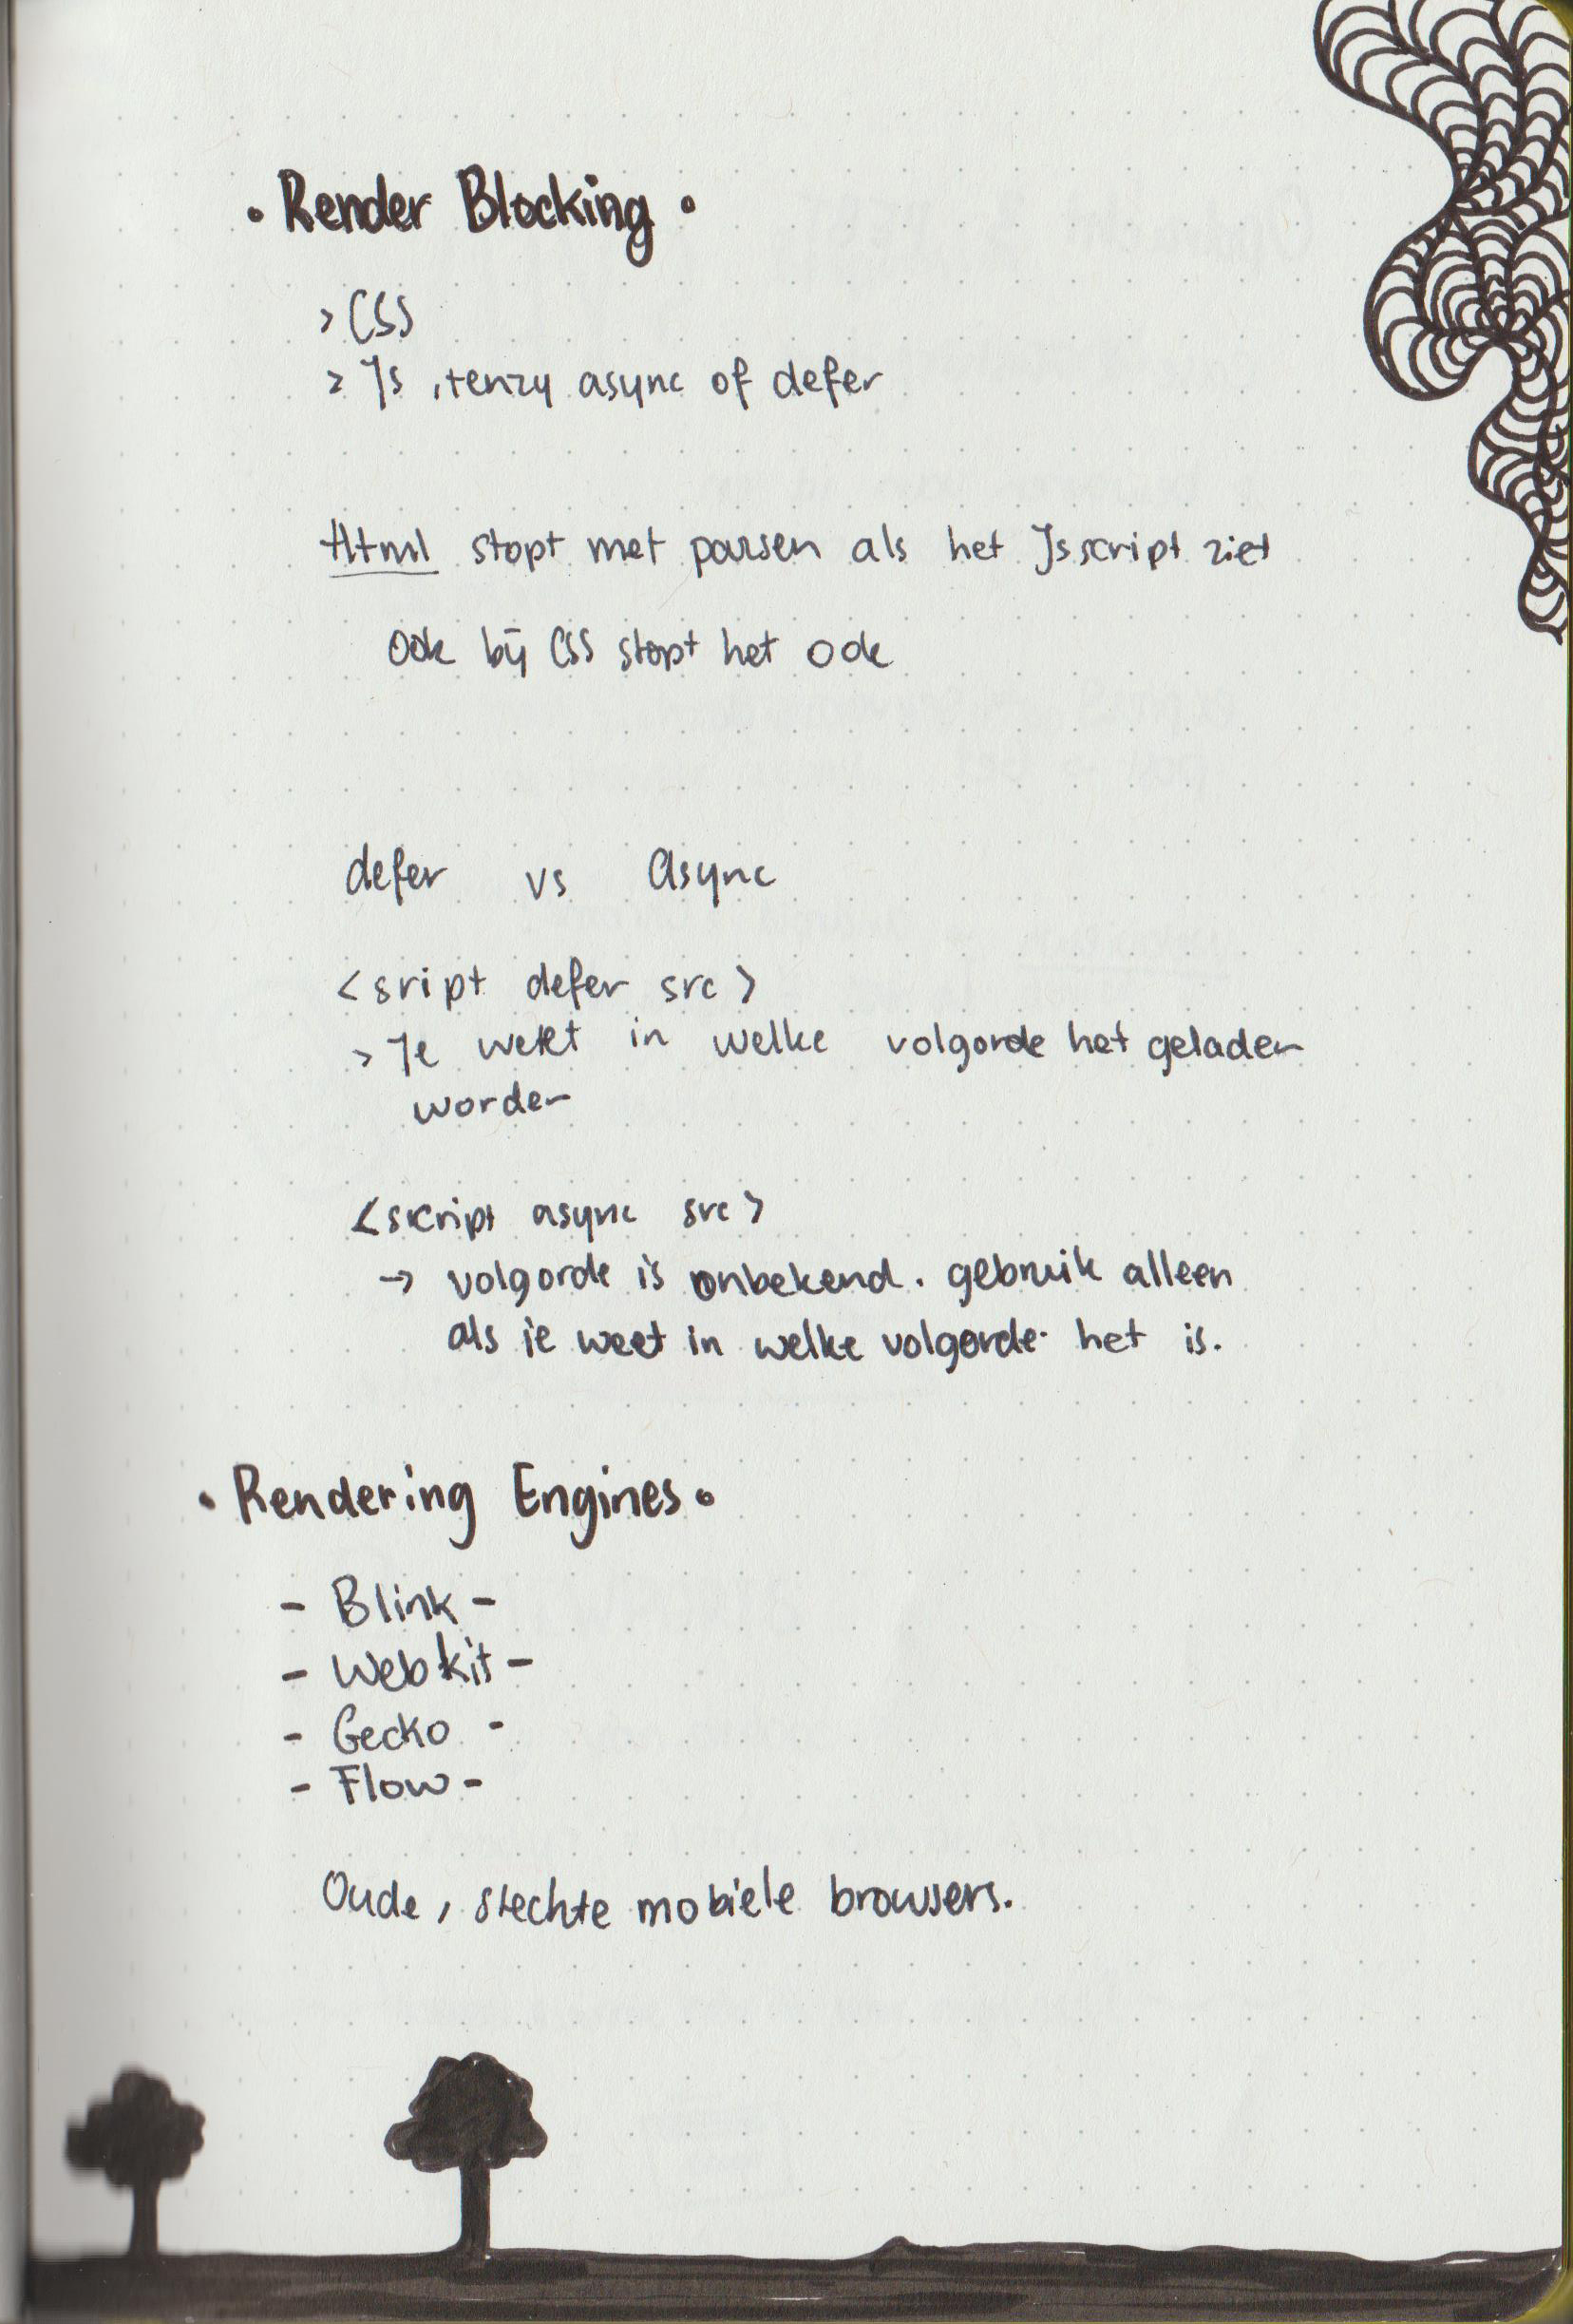 • Render Blocking •
> CSS
> Js , tenzy async of defer
Html stopt met parsen als het Js script ziet
Ook bij CSS stopt het ook
defer vs Async
<sript defer src>
> Je weet in welke volgorde het geladen
worden
<script async src>
→ volgorde is onbekend. gebruik alleen
als je weet in welke volgorde het is.
• Rendering Engines •
- Blink -
- Webkit -
- Gecko -
- Flow -
Oude, slechte mobiele browsers.